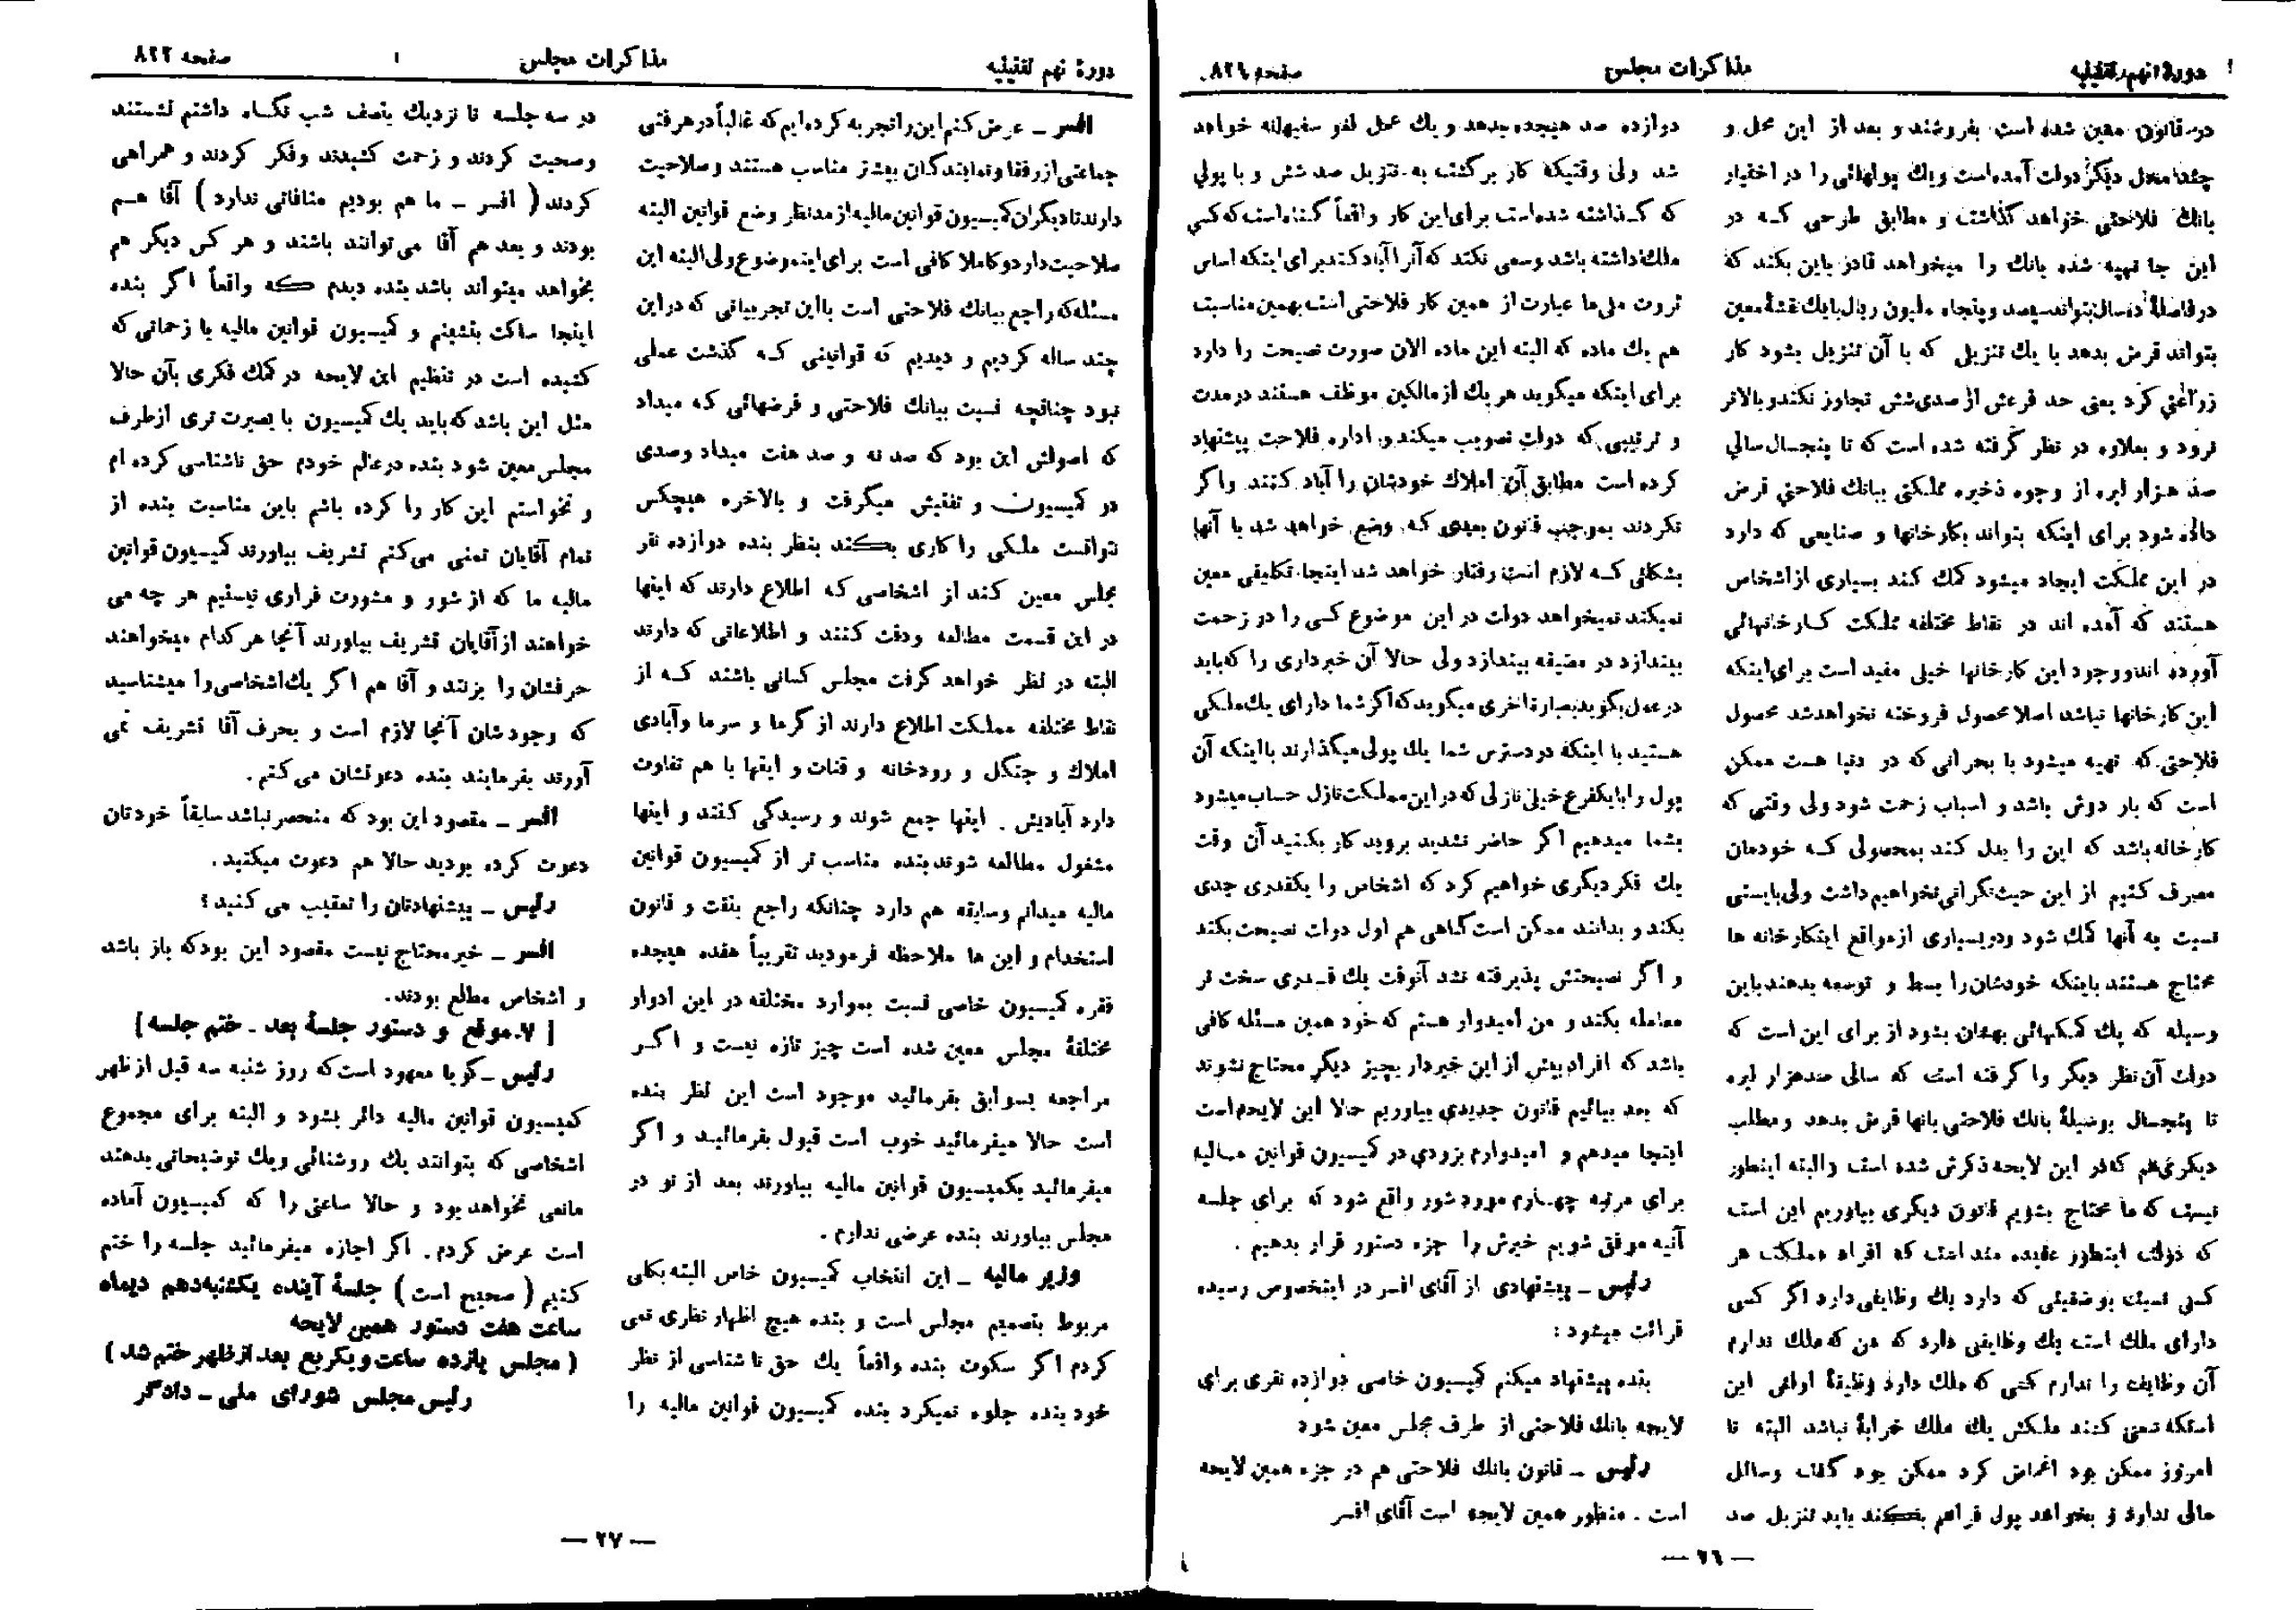 دورهٔ نهم تقنینیه
مذاکرات مجلس
صفحه ۸۲۱
در قانون معین شده است بفروشند و بعد از این محل و
چند محل دیگر دولت آمده است و یك پولهائی را در اختیار
بانك فلاحتی خواهد گذاشت و مطابق طرحی که در
این جا تهیه شده بانك را میخواهد قادر باین بکند که
در فاصلهٔ ده سال بتواند سیصد و پنجاه ملیون ریال بایك نقشهٔ معین
بتواند قرض بدهد با یك تنزیلی که با آن تنزیل بشود کار
زراعتی کرد یعنی حد فرعش از صدی شش تجاوز نکند و بالاتر
نرود و بعلاوه در نظر گرفته شده است که تا پنجسال سالی
صد هزار لیره از وجوه ذخیره مملکتی ببانك فلاحتی قرض
داده شود برای اینکه بتواند بکارخانها و صنایعی که دارد
در این مملکت ایجاد میشود کمك کند بسیاری از اشخاص
هستند که آمده اند در نقاط مختلفه مملکت کارخانهائی
آورده اند و وجود این کارخانها خیلی مفید است برای اینکه
این کارخانها نباشد اصلا محصول فروخته نخواهد شد محصول
فلاحتی که تهیه میشود با بحرانی که در دنیا هست ممکن
است که بار دوش باشد و اسباب زحمت شود ولی وقتی که
کارخانه باشد که این را بدل کند بمحصولی که خودمان
مصرف کنیم از این حیث نگرانی نخواهیم داشت ولی بایستی
نسبت به آنها کمك شود و در بسیاری از مواقع اینکارخانه ها
محتاج هستند باینکه خودشان را بسط و توسعه بدهند باین
وسیله که یك کمکهائی بهشان بشود از برای این است که
دولت آن نظر دیگر را گرفته است که سالی صد هزار لیره
تا پنجسال بوسیلهٔ بانك فلاحتی بانها قرض بدهد و مطلب
دیگری هم که در این لایحه ذکرش شده است و البته اینطور
نیست که ما محتاج بشویم قانون دیگری بیاوریم این است
که دولت اینطور عقیده مند است که افراد مملکت هر
کسی نسبت بوضعیتی که دارد یك وظایفی دارد اگر کسی
دارای ملك است یك وظایفی دارد که من که ملك ندارم
آن وظایف را ندارم کسی که ملك دارد وظیفهٔ اولش این
استکه سعی کنند ملکش یك ملك خرابهٔ نباشد البته تا
امروز ممکن بود اغماض کرد ممکن بود گفت وسائل
مالی ندارد و بخواهد پول فراهم بکند باید تنزیل صد
دوازده صد هیجده بدهد و یك عمل لغو سفیهانه خواهد
شد ولی وقتیکه کار برگشت به تنزیل صد شش و با پولی
که گذاشته شده است برای این کار واقعاً گناه است که کسی
ملك داشته باشد و سعی نکند که آنرا آباد کند برای اینکه اساس
ثروت ملی ما عبارت از همین کار فلاحتی است بهمین مناسبت
هم یك ماده که البته این ماده الان صورت نصیحت را دارد
برای اینکه میگوید هر یك از مالکین موظف هستند در مدت
و ترتیبی که دولت تصویب میکند و اداره فلاحت پیشنهاد
کرده است مطابق آن املاك خودشان را آباد کنند و اگر
نکردند بموجب قانون بعدی که وضع خواهد شد با آنها
بشکلی که لازم است رفتار خواهد شد اینجا تکلیفی معین
نمیکند نمیخواهد دولت در این موضوع کسی را در زحمت
بیندازد در مضیقه بیندازد ولی حالا آن خبرداری را که باید
در عمل بگوید بعبارة اخری میگوید که اگر شما دارای یك ملکی
هستید با اینکه در دسترس شما یك پولی میگذارند با اینکه آن
پول را با یکفرع خیلی نازلی که در این مملکت نازل حساب میشود
بشما میدهیم اگر حاضر نشدید بروید کار بکنید آن وقت
یك فکر دیگری خواهیم کرد که اشخاص را یکقدری جدی
بکند و بدانند ممکن است گاهی هم اول دولت نصیحت بکند
و اگر نصیحتش پذیرفته نشد آنوقت یك قدری سخت تر
معامله بکند و من امیدوار هستم که خود همین مسئله کافی
باشد که افراد بیش از این خبردار بچیز دیگر محتاج نشوند
که بعد بیائیم قانون جدیدی بیاوریم حالا این لایحه است
اینجا میدهم و امیدوارم بزودی در کمیسیون قوانین مالیه
برای مرتبه چهارم مورد شور واقع شود که برای جلسه
آتیه موفق شویم خبرش را جزء دستور قرار بدهیم .
رئیس ـ پیشنهادی از آقای افسر در اینخصوص رسیده
قرائت میشود :
بنده پیشنهاد میکنم کمیسیون خاصی دوازده نفری برای
لایحه بانك فلاحتی از طرف مجلس معین شود
رئیس ـ قانون بانك فلاحتی هم در جزء همین لایحه
است . منظور همین لایحه است آقای افسر
— ۲۶ —
دورهٔ نهم تقنینیه
مذاکرات مجلس
صفحه ۸۲۲
افسر ـ عرض کنم این را تجربه کرده ایم که غالباً در هر فنی
جماعتی از رفقا و نمایندگان بیشتر مناسب هستند و صلاحیت
دارند تا دیگران کمیسیون قوانین مالیه از مد نظر وضع قوانین البته
صلاحیت دارد و کاملا کافی است برای اینموضوع ولی البته این
مسئله که راجع ببانك فلاحتی است با این تجربیاتی که در این
چند ساله کردیم و دیدیم که قوانینی که گذشت عملی
نبود چنانچه نسبت ببانك فلاحتی و قرضهائی که میداد
که اصولش این بود که صد نه و صد هفت میداد و صدی
در کمیسیون و تفتیش میگرفت و بالاخره هیچکس
نتوانست ملکی را کاری بکند بنظر بنده دوازده نفر
مجلس معین کند از اشخاصی که اطلاع دارند که اینها
در این قسمت مطالعه و دقت کنند و اطلاعاتی که دارند
البته در نظر خواهد گرفت مجلس کسانی باشند که از
نقاط مختلفه مملکت اطلاع دارند از گرما و سرما و آبادی
املاك و جنگل و رودخانه و قنات و اینها با هم تفاوت
دارد آبادیش . اینها جمع شوند و رسیدگی کنند و اینها
مشغول مطالعه شوند بنده مناسب تر از کمیسیون قوانین
مالیه میدانم و سابقه هم دارد چنانکه راجع بنفت و قانون
استخدام و این ها ملاحظه فرمودید تقریباً هفده هیجده
فقره کمیسیون خاصی نسبت بموارد مختلفه در این ادوار
مختلفهٔ مجلس معین شده است چیز تازه نیست و اگر
مراجعه بسوابق بفرمائید موجود است این نظر بنده
است حالا میفرمائید خوب است قبول بفرمائید و اگر
میفرمائید بکمیسیون قوانین مالیه بیاورند بعد از نو در
مجلس بیاورند بنده عرضی ندارم .
وزیر مالیه ـ این انتخاب کمیسیون خاص البته بکلی
مربوط بتصمیم مجلس است و بنده هیچ اظهار نظری نمی
کردم اگر سکوت بنده واقعاً یك حق ناشناسی از نظر
خود بنده جلوه نمیکرد بنده کمیسیون قوانین مالیه را
در سه جلسه تا نزدیك بنصف شب نگاه داشتم نشستند
و صحبت کردند و زحمت کشیدند و فکر کردند و همراهی
کردند ( افسر ـ ما هم بودیم منافاتی ندارد ) آقا هم
بودند و بعد هم آقا می توانند باشند و هر کس دیگر هم
بخواهد میتواند باشد بنده دیدم که واقعاً اگر بنده
اینجا ساکت بنشینم و کمیسیون قوانین مالیه با زحماتی که
کشیده است در تنظیم این لایحه در کمك فکری بآن حالا
مثل این باشد که باید یك کمیسیون با بصیرت تری از طرف
مجلس معین شود بنده در عالم خودم حق ناشناسی کرده ام
و نخواستم این کار را کرده باشم باین مناسبت بنده از
تمام آقایان تمنی می کنم تشریف بیاورند کمیسیون قوانین
مالیه ما که از شور و مشورت فراری نیستیم هر چه می
خواهند از آقایان تشریف بیاورند آنجا هر کدام میخواهند
حرفشان را بزنند و آقا هم اگر یك اشخاصی را میشناسید
که وجودشان آنجا لازم است و بحرف آقا تشریف نمی
آورند بفرمایند بنده دعوتشان می کنم .
افسر ـ مقصود این بود که منحصر نباشد سابقاً خودتان
دعوت کرده بودید حالا هم دعوت میکنید .
رئیس ـ پیشنهادتان را تعقیب می کنید ؟
افسر ـ خیر محتاج نیست مقصود این بود که باز باشد
و اشخاص مطلع بودند .
[ ۷ـ موقع و دستور جلسهٔ بعد ـ ختم جلسه ]
رئیس ـ گویا معهود است که روز شنبه سه قبل از ظهر
کمیسیون قوانین مالیه دائر بشود و البته برای مجموع
اشخاصی که بتوانند یك روشنائی و یك توضیحاتی بدهند
مانعی نخواهد بود و حالا ساعتی را که کمیسیون آماده
است عرض کردم . اگر اجازه میفرمائید جلسه را ختم
کنیم ( صحیح است ) جلسهٔ آینده یکشنبه دهم دیماه
ساعت هفت دستور همین لایحه
( مجلس یازده ساعت و یکربع بعد از ظهر ختم شد )
رئیس مجلس شورای ملی ـ دادگر
— ۲۷ —